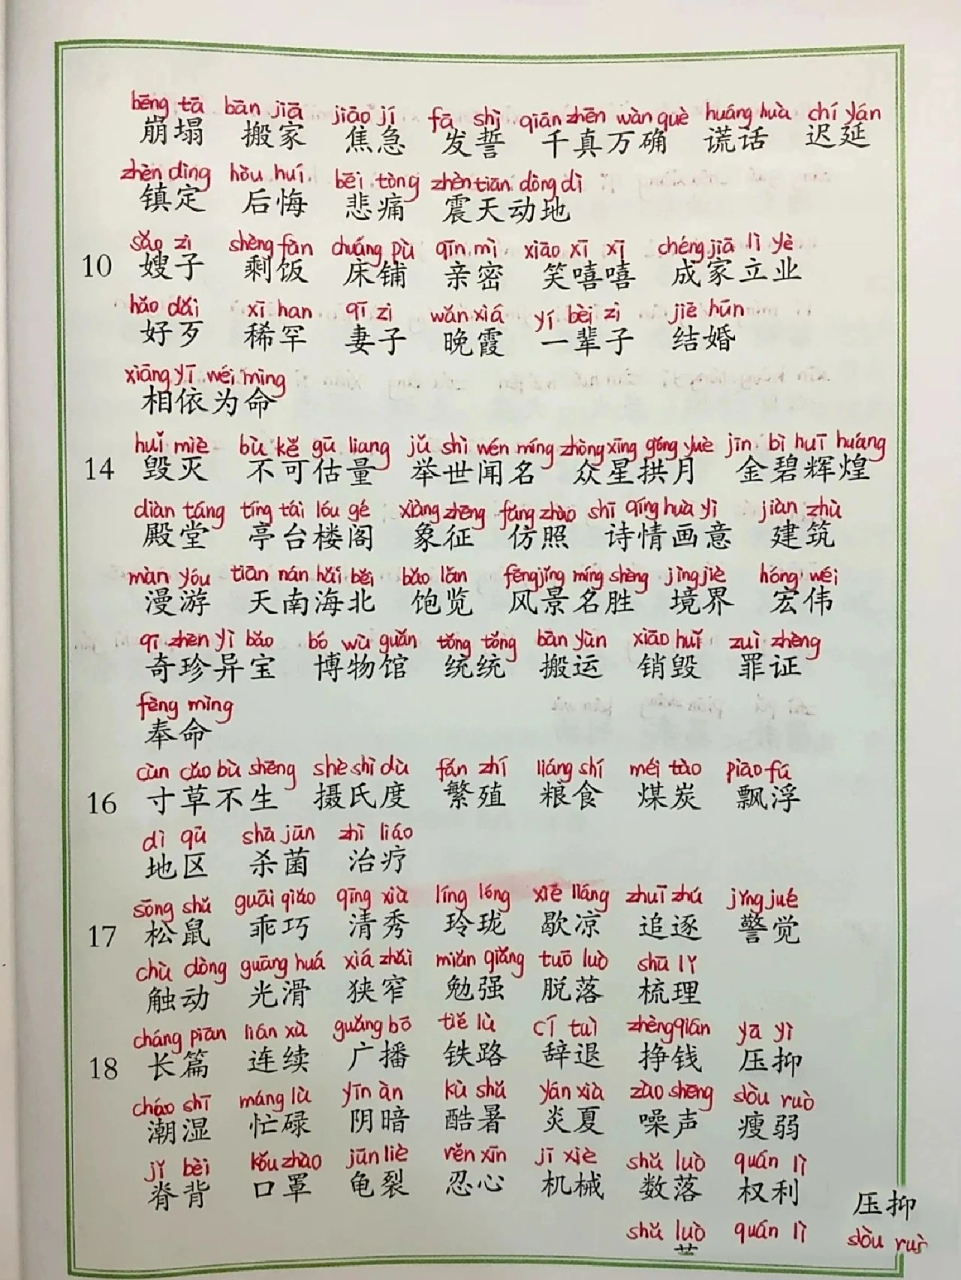 bēng tā bān jiā jiāo jí fā shì qiān zhēn wàn què huáng huà chí yán
崩塌 搬家 焦急 发誓 千真万确 谎话 迟延
zhèn dìng hòu huí bēi tòng zhèn tiān dòng dì
镇定 后悔 悲痛 震天动地
sǎo zi shèng fàn chuáng pù qīn mì xiào xī xī chéng jiā lì yè
10 嫂子 剩饭 床铺 亲密 笑嘻嘻 成家立业
hǎo dǎi xī han qī zi wǎn xiá yí bèi zi jié hūn
好歹 稀罕 妻子 晚霞 一辈子 结婚
xiāng yī wéi mìng
相依为命
huǐ miè bù kě gū liang jǔ shì wén míng zhòng xīng gǒng yuè jīn bì huī huáng
14 毁灭 不可估量 举世闻名 众星拱月 金碧辉煌
diàn táng tíng tái lóu gé xiàng zhēng fǎng zhào shī qíng huà yì jiàn zhù
殿堂 亭台楼阁 象征 仿照 诗情画意 建筑
màn yóu tiān nán hǎi běi bǎo lǎn fēng jǐng míng shèng jìng jiè hóng wěi
漫游 天南海北 饱览 风景名胜 境界 宏伟
qí zhēn yì bǎo bó wù guǎn tǒng tǒng bān yùn xiāo huǐ zuì zhèng
奇珍异宝 博物馆 统统 搬运 销毁 罪证
fèng mìng
奉命
cùn cǎo bù shēng shè shì dù fán zhí liáng shí méi tàn piāo fú
16 寸草不生 摄氏度 繁殖 粮食 煤炭 飘浮
dì qū shā jūn zhì liáo
地区 杀菌 治疗
sōng shǔ guāi qiǎo qīng xiù líng lóng xiē liáng zhuī zhú jǐng jué
17 松鼠 乖巧 清秀 玲珑 歇凉 追逐 警觉
chù dòng guāng huá xiá zhǎi miǎn qiǎng tuō luò shū lǐ
触动 光滑 狭窄 勉强 脱落 梳理
cháng piān lián xù guǎng bō tiě lù cí tuì zhèng qián yā yì
18 长篇 连续 广播 铁路 辞退 挣钱 压抑
cháo shī máng lù yīn àn kù shǔ yán xià zào shēng shòu ruò
潮湿 忙碌 阴暗 酷暑 炎夏 噪声 瘦弱
jǐ bèi kǒu zhào jūn liè rěn xīn jī xiè shǔ luò quán lì
脊背 口罩 龟裂 忍心 机械 数落 权利
压抑
shǔ luò quán lì shòu ruò